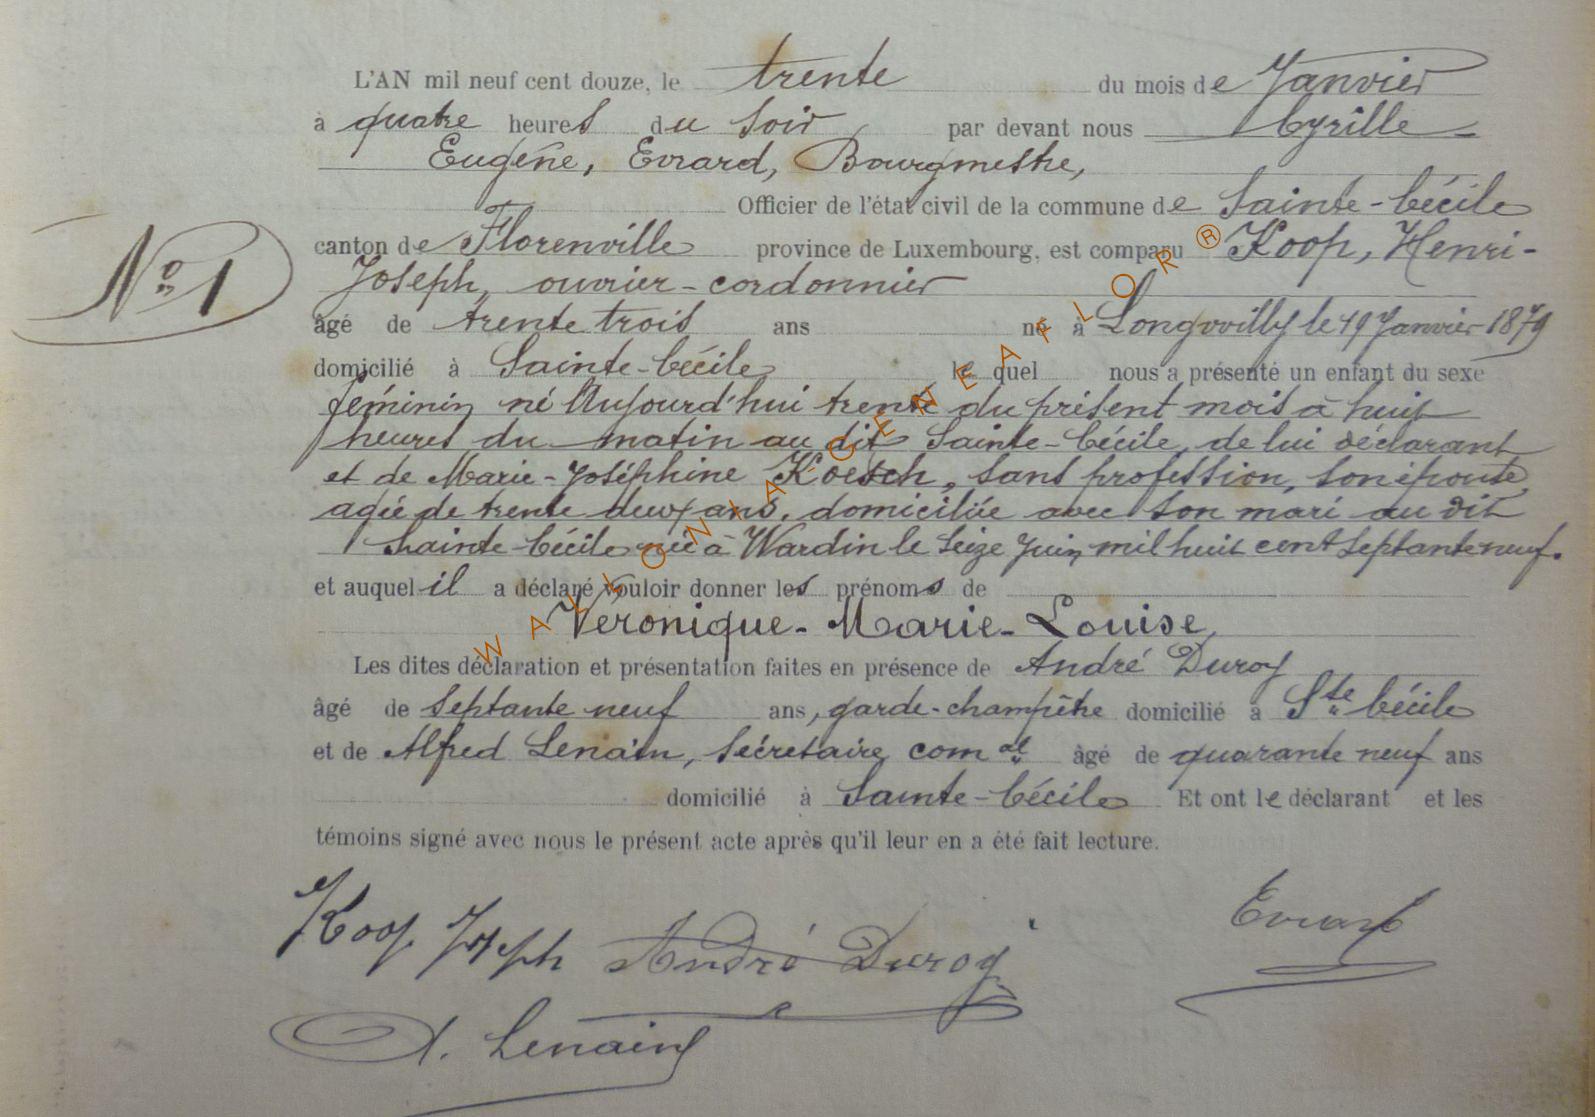 L'AN mil neuf cent douze, le trente du mois de Janvier
à quatre heures du soir par devant nous Cyrille
Eugène, Evrard, Bourgmestre,
Officier de l'état civil de la commune de Sainte-Cécile
canton de Florenville province de Luxembourg, est comparu Koop, Henri-
Joseph, ouvrier-cordonnier
N° 1
âgé de trente trois ans né à Longvilly le 19 Janvier 1879
domicilié à Sainte-Cécile le quel nous a présenté un enfant du sexe
féminin né Aujourd'hui trente du présent mois à huit
heures du matin au dit Sainte-Cécile, de lui déclarant
et de Marie-Joséphine Koesch, sans profession, son épouse
agée de trente deux ans, domiciliée avec son mari au dit
Sainte-Cécile née à Wardin le seize Juin mil huit cent septante neuf.
et auquel il a déclaré vouloir donner les prénoms de
Véronique-Marie-Louise,
Les dites déclaration et présentation faites en présence de André Duroy
âgé de septante neuf ans, garde-champêtre domicilié à Ste Cécile
et de Alfred Lenain, Secrétaire comal âgé de quarante neuf ans
domicilié à Sainte-Cécile Et ont le déclarant et les
témoins signé avec nous le présent acte après qu'il leur en a été fait lecture.
Koop Joseph André Duroy Evrard
A. Lenain
WALLONIA-GENEAFLOR®